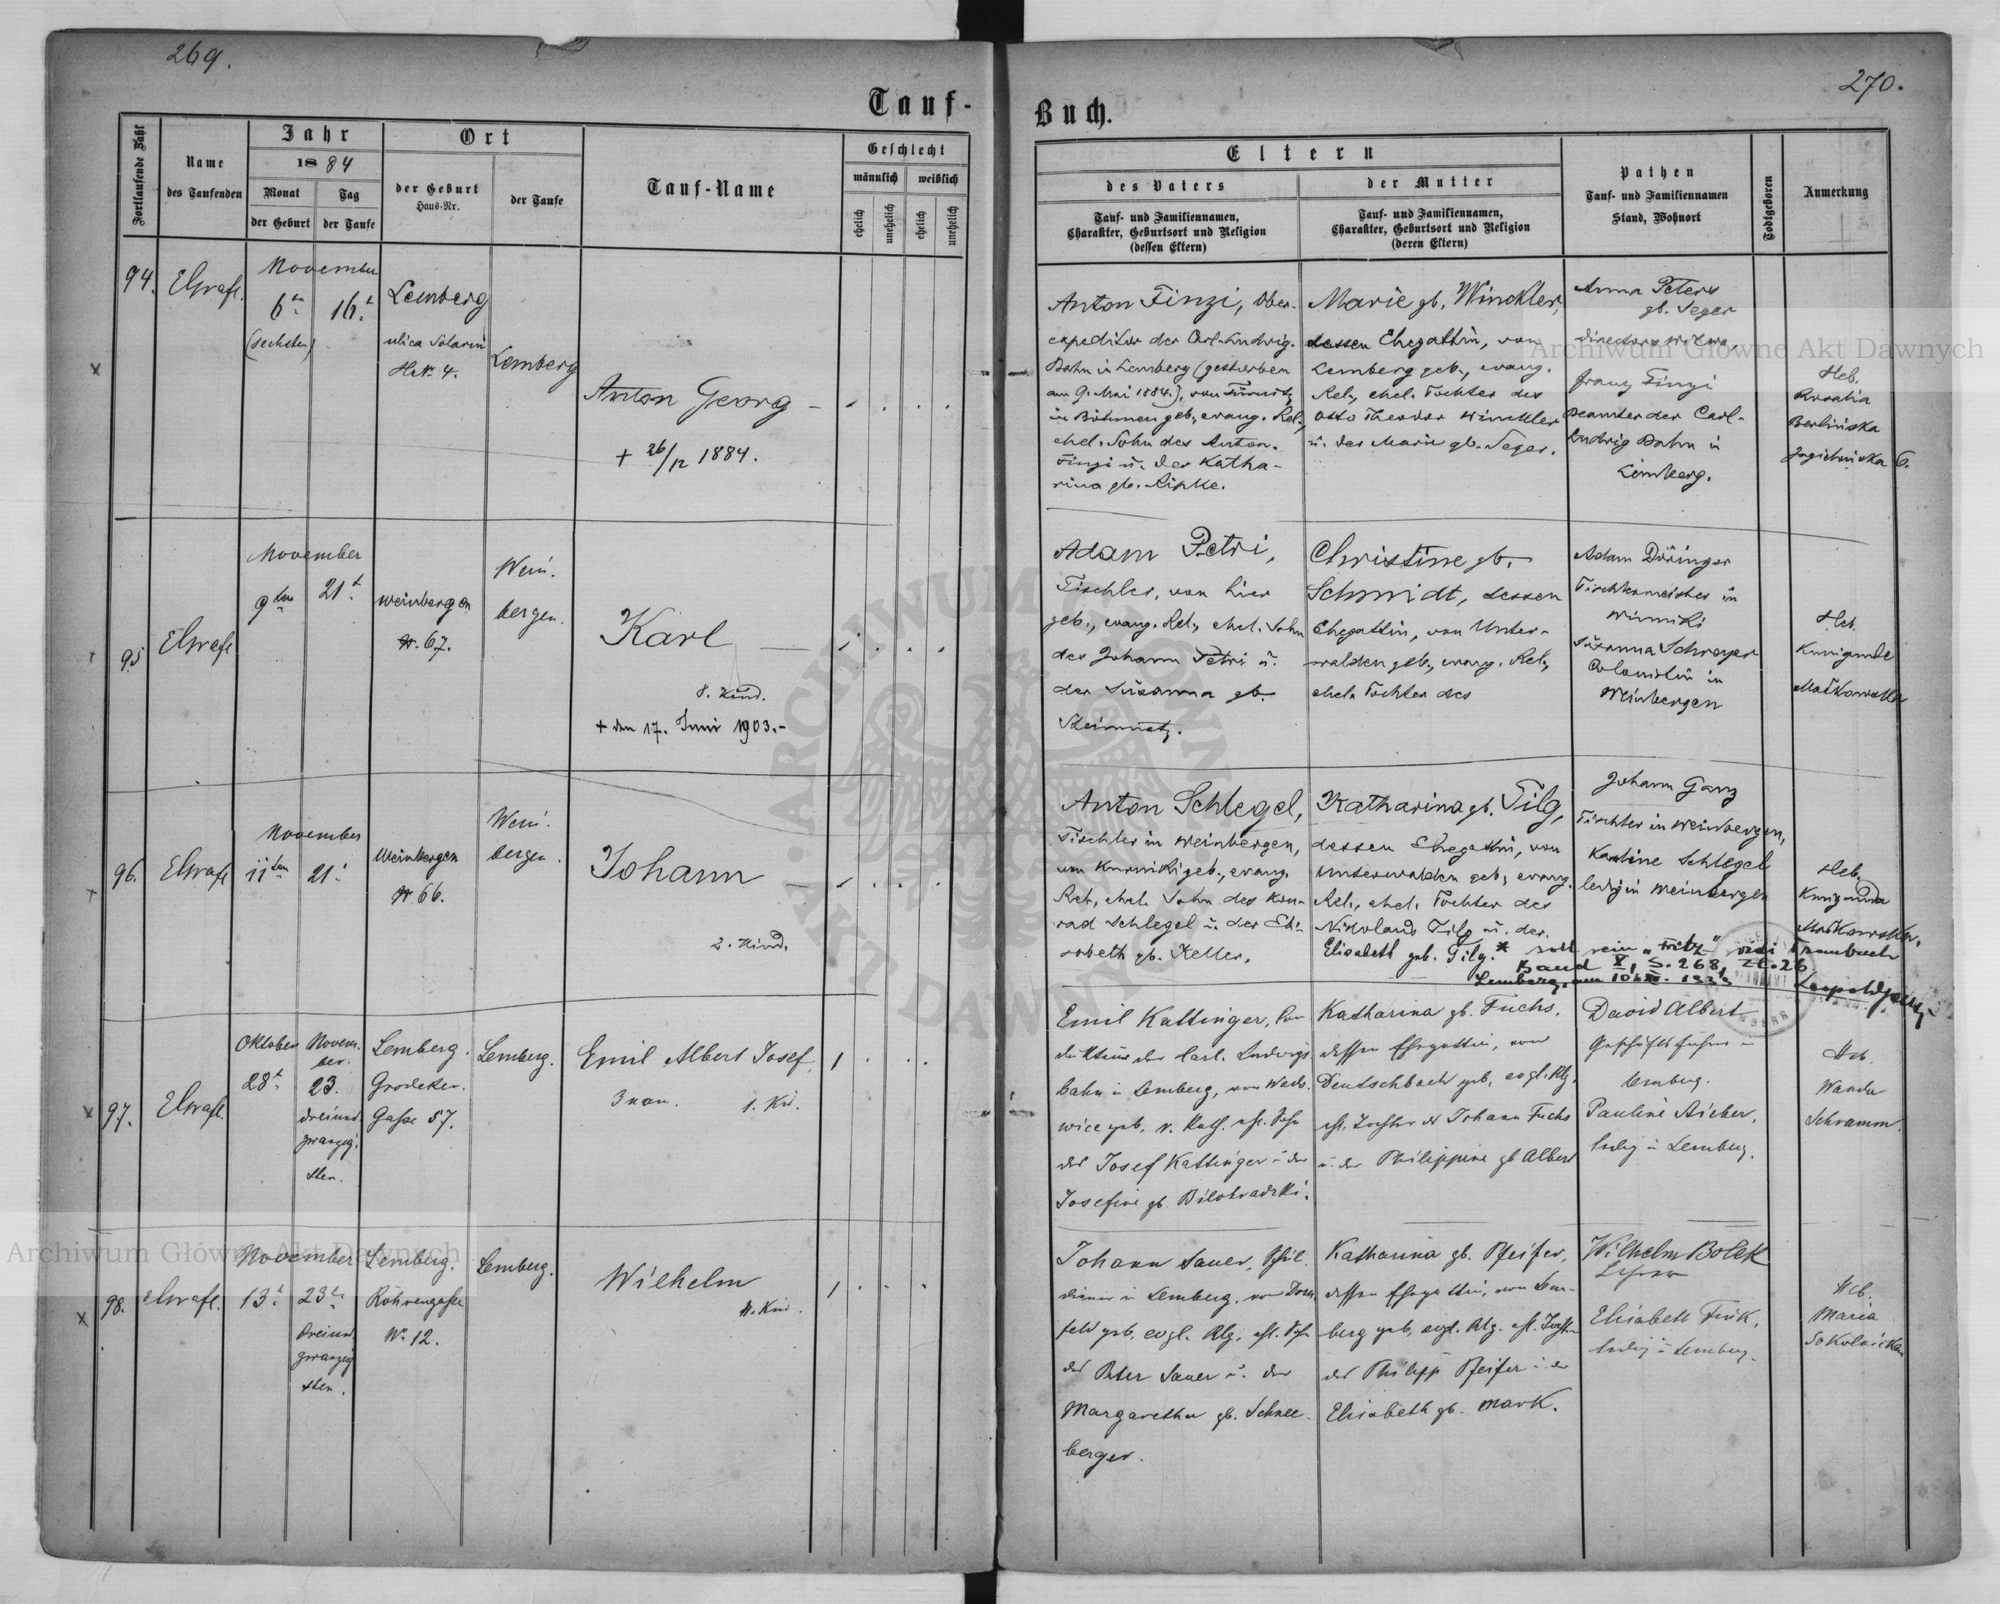 269.
270.
Tauf-
Buch.
Fortlaufende Zahl
Name
des Taufenden
Jahr
1884
Monat
der Geburt
Tag
der Taufe
Ort
der Geburt
Haus-Nr.
der Taufe
Tauf-Name
Geschlecht
männlich
weiblich
ehelich
unehelich
ehelich
unehelich
Eltern
des Vaters
Tauf- und Familiennamen,
Charakter, Geburtsort und Religion
(dessen Eltern)
der Mutter
Tauf- und Familiennamen,
Charakter, Geburtsort und Religion
(deren Eltern)
Pathen
Tauf- und Familiennamen
Stand, Wohnort
Todtgeboren
Anmerkung
94.
November
6ten
(sechsten)
16t.
Lemberg
ulica
Nr. 4.
Lemberg
Anton Georg –
+ 26/12 1884.
Anton Finzi, Ober-
expeditor der Carl-Ludwig-
Bahn in Lemberg (gestorben
am 9. Mai 1884.), von
in Böhmen geb., evang. Rel.,
ehel. Sohn des Anton
Finzi u. der Katha-
rina gb. Ripke.
Marie gb. Winckler,
dessen Ehegattin, von
Lemberg geb., evang.
Rel., ehel. Tochter des
Otto Theodor Winckler
u. der Marie gb. Seger.
Anna Peters
gb. Seger
Directors Witwe,
Franz Finzi
Beamter der Carl-
Ludwig Bahn in
Lemberg.
Heb.
Rosalia
Berlińska
6.
95
November
9ten
21t.
Weinbergen
Nr. 67.
Wein-
bergen.
Karl –
8. Kind.
+ den 17. Juni 1903.-
Adam Petri,
Tischler, von hier
geb., evang. Rel., ehel. Sohn
des Johann Petri u.
der Susanna gb.
Steinmetz.
Christine gb.
Schmidt, dessen
Ehegattin, von Unter-
walden geb., evang. Rel.,
ehel. Tochter des
Adam Döringer
Tischlermeister in
Winniki
Susanna Schreyer
Colonistin in
Weinbergen
Heb.
Kunigunde
96.
November
11ten
21t.
Weinbergen
Nr 66.
Wein-
bergen.
Johann –
2. Kind.
Anton Schlegel,
Tischler in Weinbergen,
von geb., evang.
Rel., ehel. Sohn des Kon-
rad Schlegel u. der Eli-
sabeth gb. Keller.
Katharina gb. Tilg,
dessen Ehegattin, von
Unterwalden geb., evang.
Rel., ehel. Tochter des
Tilg u. der
Elisabeth geb. Tilg.* soll sein „ " vidi Traubuch
Band X, S. 268, Zl. 26
Lemberg, am
Johann Ganz
Tischler in Weinbergen,
Karoline Schlegel
ledig in Weinbergen
Heb.
Kunigunda
97.
Oktober
28t.
Novem-
ber.
23.
dreiund-
zwanzig-
sten.
Lemberg.
Grodeker-
Gasse 57.
Lemberg.
Emil Albert Josef
3 nom. 1. Kd.
1
Emil Kattinger, Con-
dukteur der Carl Ludwigs-
bahn in Lemberg, von Wado-
wice geb., r. kath. ehl. Sohn
des Josef Kattinger u der
Josefine gb.
Katharina gb. Fuchs,
dessen Ehegattin, von
Deutschbach geb., evgl. Rlg.
ehl. Tochter d Johann Fuchs
u. der Philippine gb Albert
David Albert
Geschäftsführer in
Lemberg.
Pauline
ledig in Lemberg.
Heb.
Wanda
Schramm.
98.
November
13t.
23ten
dreiund-
zwanzig-
sten.
Lemberg.
Röhrengasse
No. 12.
Lemberg.
Wilhelm
4. Kind.
1
Johann Sauer, Schul-
diener in Lemberg, von Dorn-
feld geb., evgl. Rlg., ehl. Sohn
des Peter Sauer u. der
Margaretha gb. Schnee-
berger.
Katharina gb. Pfeifer,
dessen Ehegattin, von Lem-
berg geb., evgl. Rlg. ehl. Tochter
des Philipp Pfeifer u der
Elisabeth gb. Mark.
Wilhelm Bolek
Lehrer
Elisabeth Fink,
ledig in Lemberg.
Heb.
Maria
Archiwum Główne Akt Dawnych
Archiwum Główne Akt Dawnych
ARCHIWUM GŁÓWNE AKT DAWNYCH